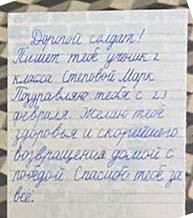 Дорогой солдат!
Пишет тебе ученик 2
класса Степовой Марк
Поздравляю тебя с 23
февраля. Желаю тебе
здоровья и скорейшего
возвращения домой с
победой. Спасибо тебе за
всё.